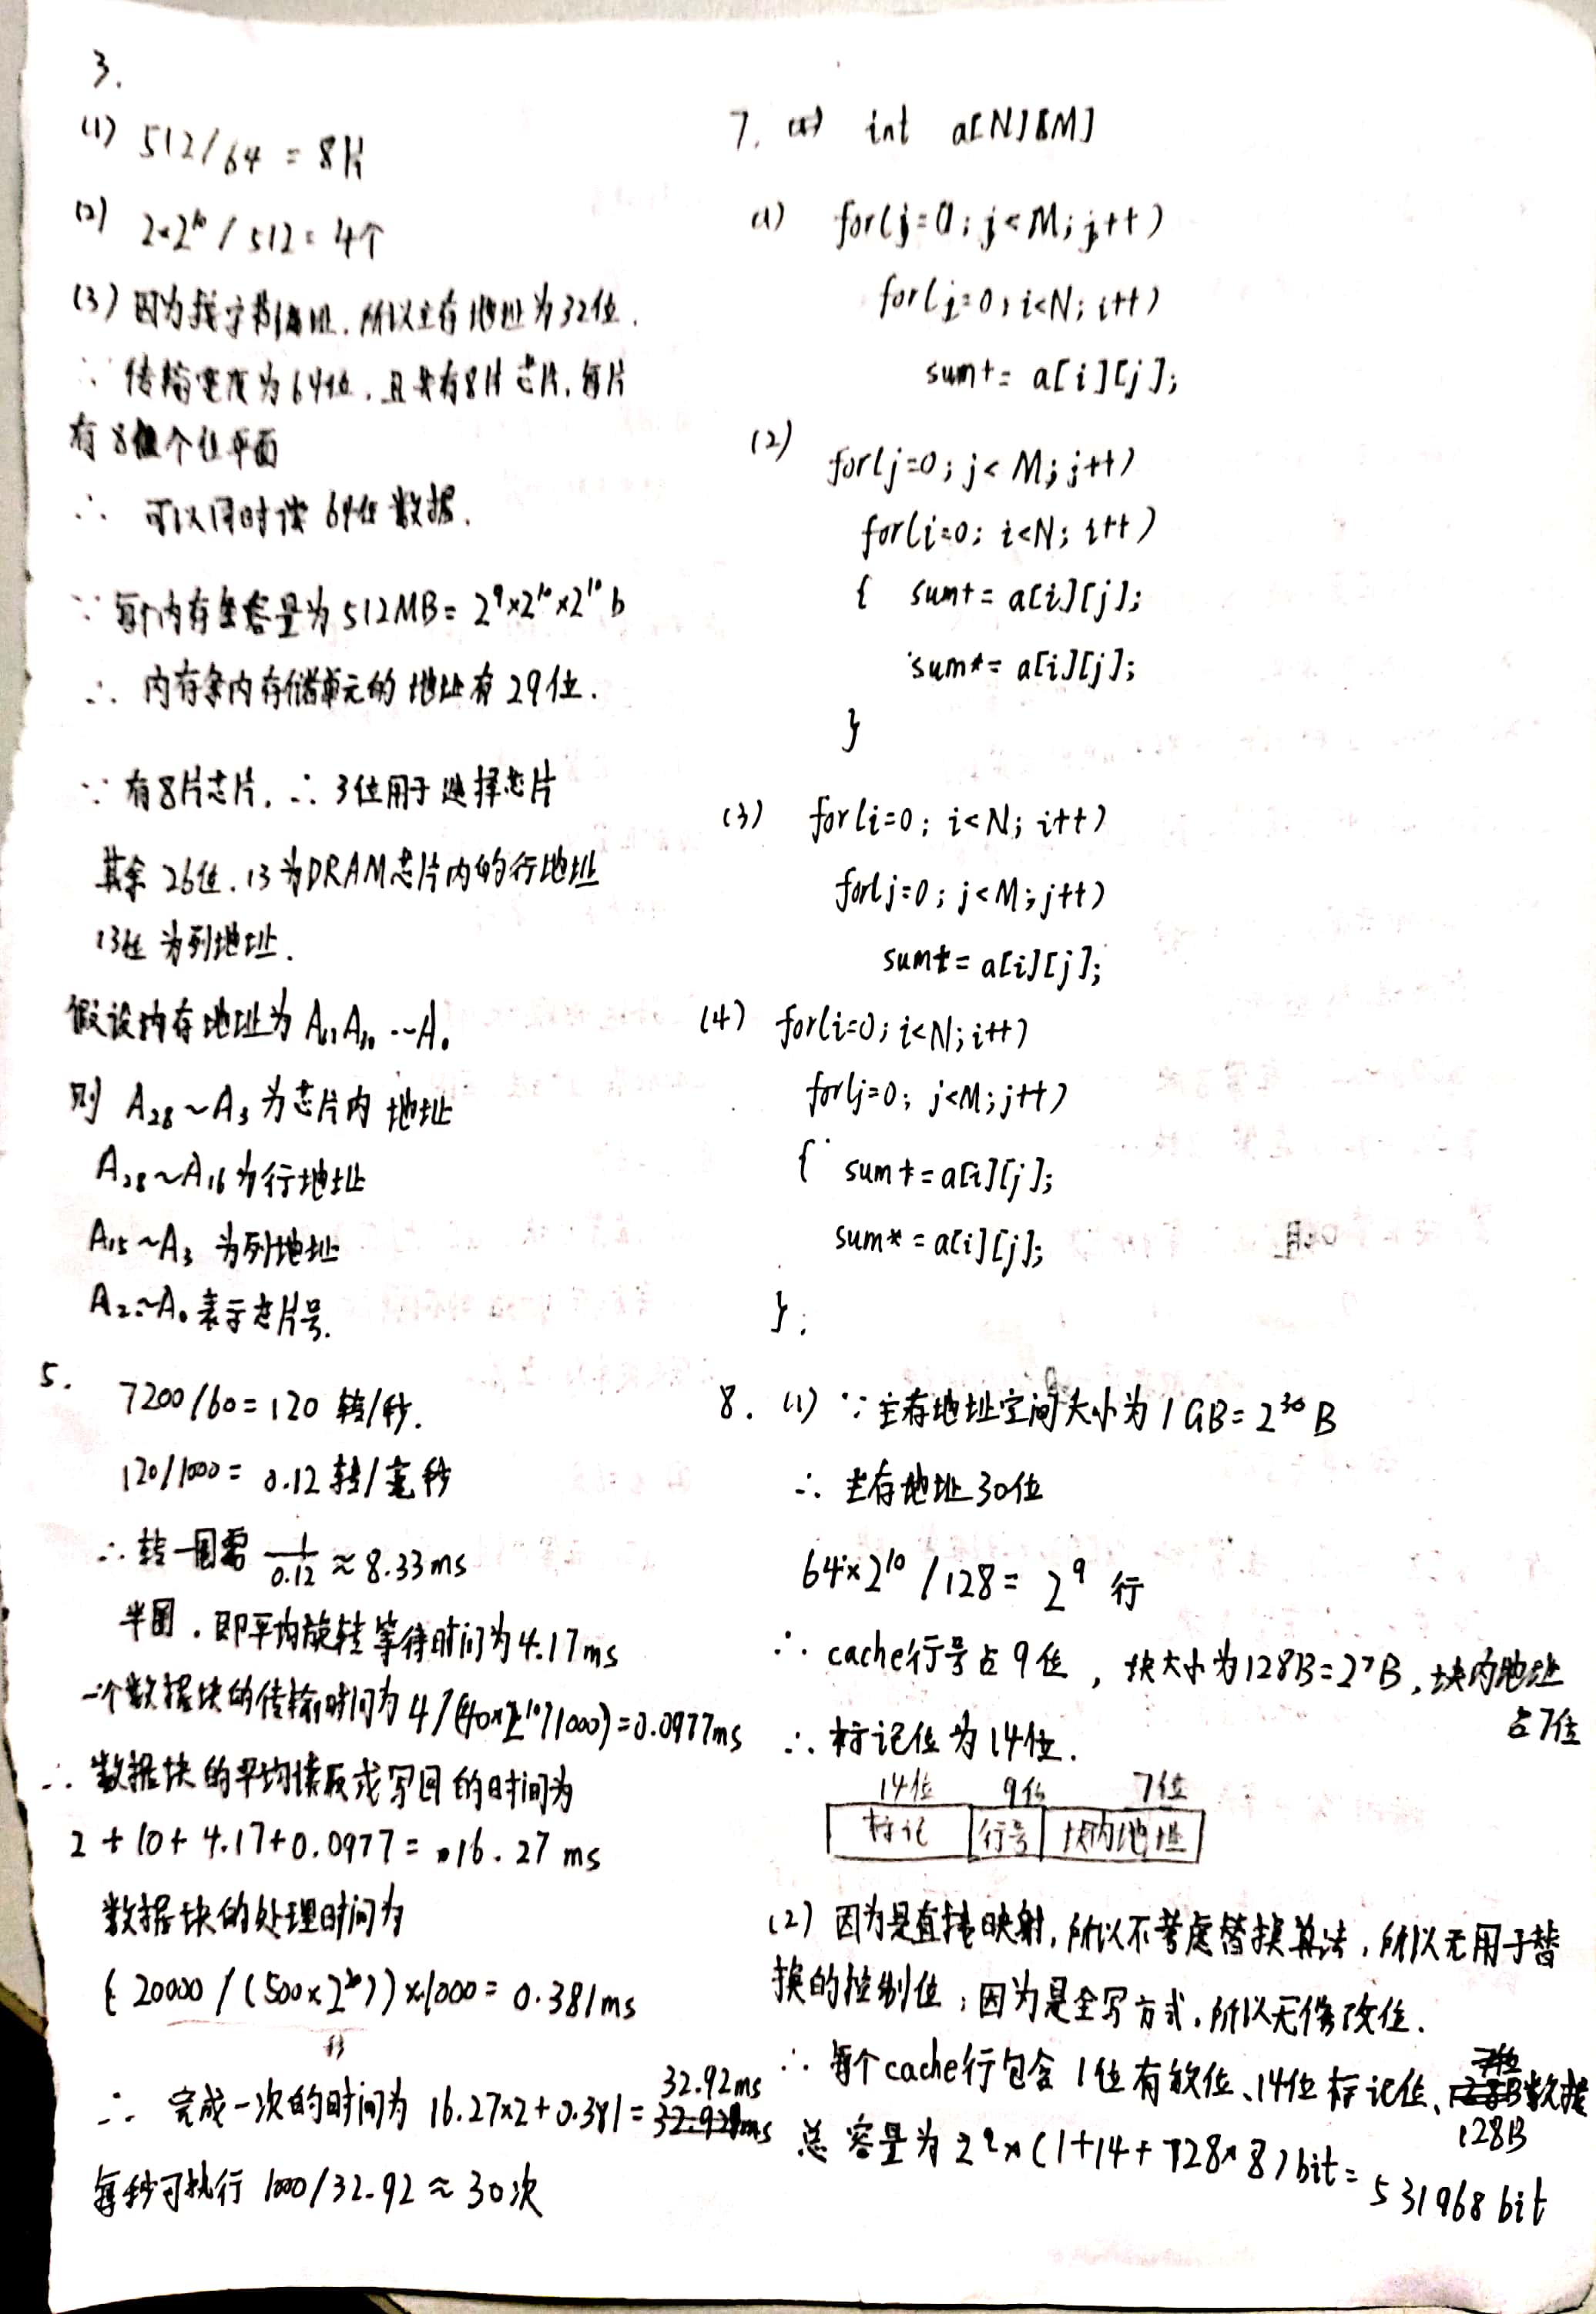 3.
(1) 512/64 = 8片
(2) 2×2¹⁰ / 512 = 4个
(3) 因为按字节编址, 所以主存地址为32位.
∵ 传输宽度为64位, 且共有8片芯片, 每片
有8个位平面
∴ 可以同时读64位数据.
∵ 每个内存条容量为512MB = 2⁹×2¹⁰×2¹⁰ b
∴ 内存条内存储单元的地址有29位.
∵ 有8片芯片, ∴ 3位用于选择芯片
其余26位, 13为DRAM芯片内的行地址
13位为列地址.
假设内存地址为 A₃₁A₃₀…A₀
则 A₂₈~A₃ 为芯片内地址
A₂₈~A₁₆为行地址
A₁₅~A₃ 为列地址
A₂~A₀表示芯片号.
5.
7200/60=120 转/秒.
120/1000= 0.12转/毫秒
∴ 转一圈需 1/0.12 ≈ 8.33ms
半圈, 即平均旋转等待时间为4.17ms
一个数据块的传输时间为 4/(40×2¹⁰/1000)=0.0977ms
∴ 数据块的平均读取或写回的时间为
2+10+4.17+0.0977= 16.27 ms
数据块的处理时间为
(20000/(500×2²⁰))×1000= 0.381ms
∴ 完成一次的时间为 16.27×2+0.381= 32.92ms
每秒可执行 1000/32.92 ≈ 30次
7. int a[N][M]
(1) for(j=0; j<M; j++)
for(i=0; i<N; i++)
sum+= a[i][j];
(2) for(j=0; j<M; j++)
for(i=0; i<N; i++)
{ sum+= a[i][j];
sum*= a[i][j];
}
(3) for(i=0; i<N; i++)
for(j=0; j<M; j++)
sum+= a[i][j];
(4) for(i=0; i<N; i++)
for(j=0; j<M; j++)
{ sum+=a[i][j];
sum*=a[i][j];
}.
8. (1) ∵ 主存地址空间大小为1GB=2³⁰B
∴ 主存地址30位
64×2¹⁰ /128= 2⁹ 行
∴ cache行号占9位, 块大小为128B=2⁷B, 块内地址
占7位
∴ 标记位为14位.
14位 9位 7位
标记 行号 块内地址
(2) 因为是直接映射, 所以不考虑替换算法, 所以无用于替
换的控制位; 因为是全写方式, 所以无修改位.
∴ 每个cache行包含1位有效位、14位标记位、128B数据
总容量为2⁹×(1+14+128×8)bit= 531968 bit